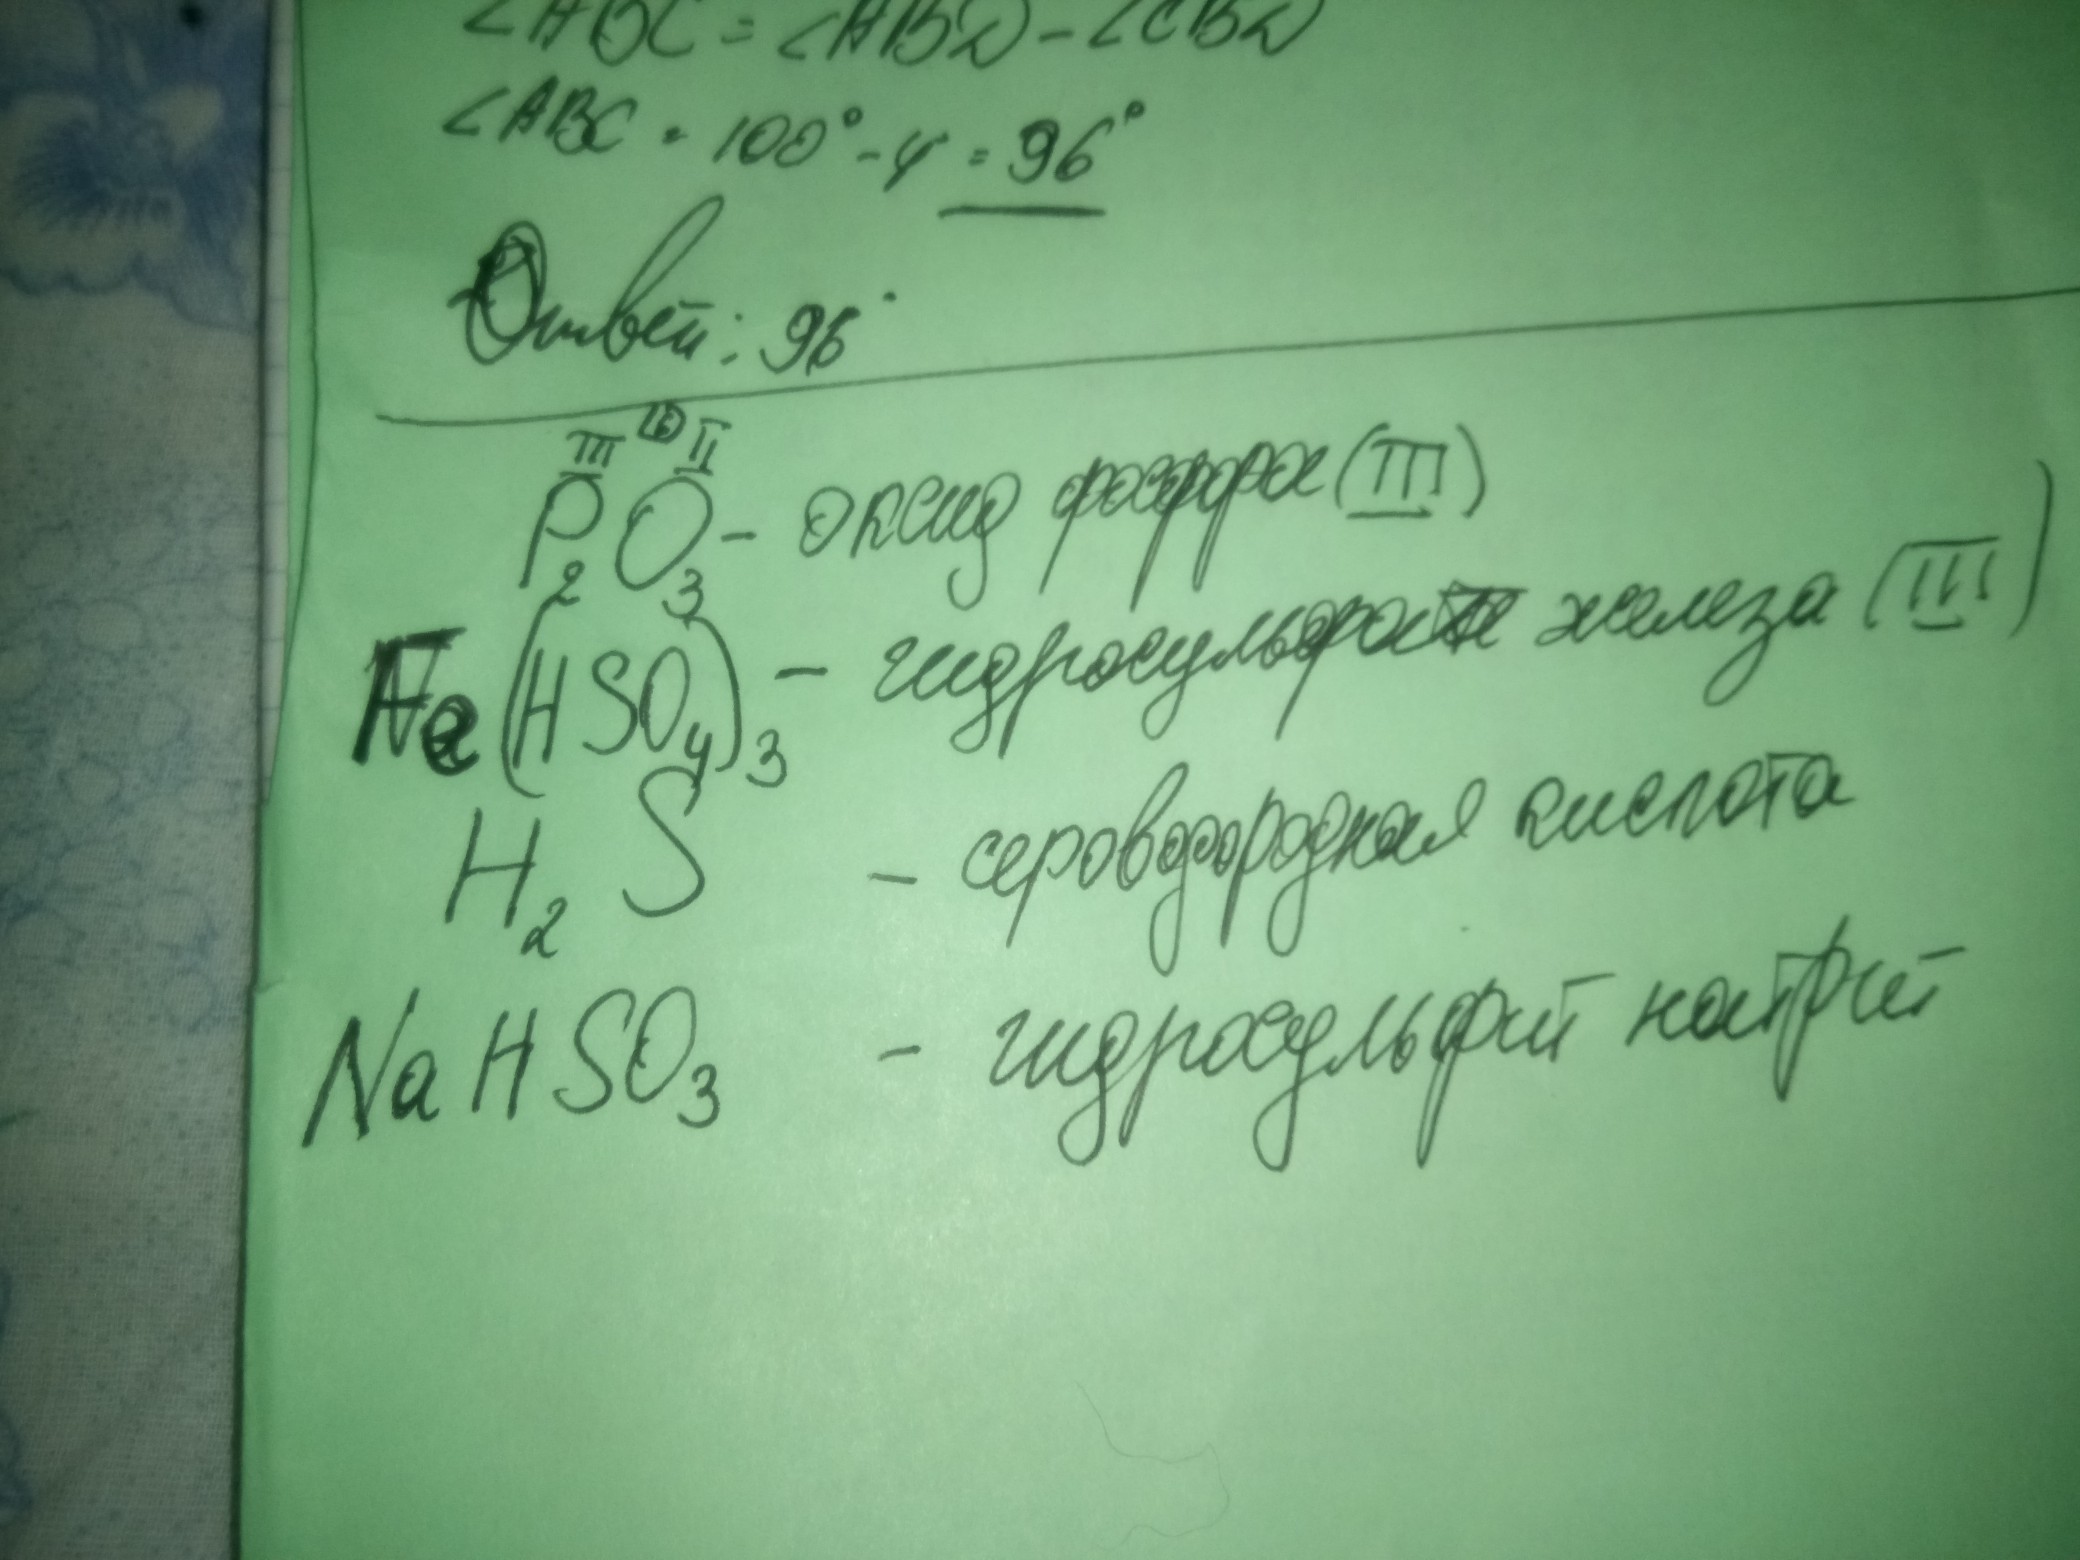 ∠ABC = ∠ABD - ∠CBD
∠ABC = 100° - 4° = 96°
Ответ: 96°
III (6) II
P₂O₃ - оксид фосфора (III)
Fe(HSO₄)₃ - гидросульфат железа (III)
H₂S - сероводородная кислота
NaHSO₃ - гидросульфит натрит